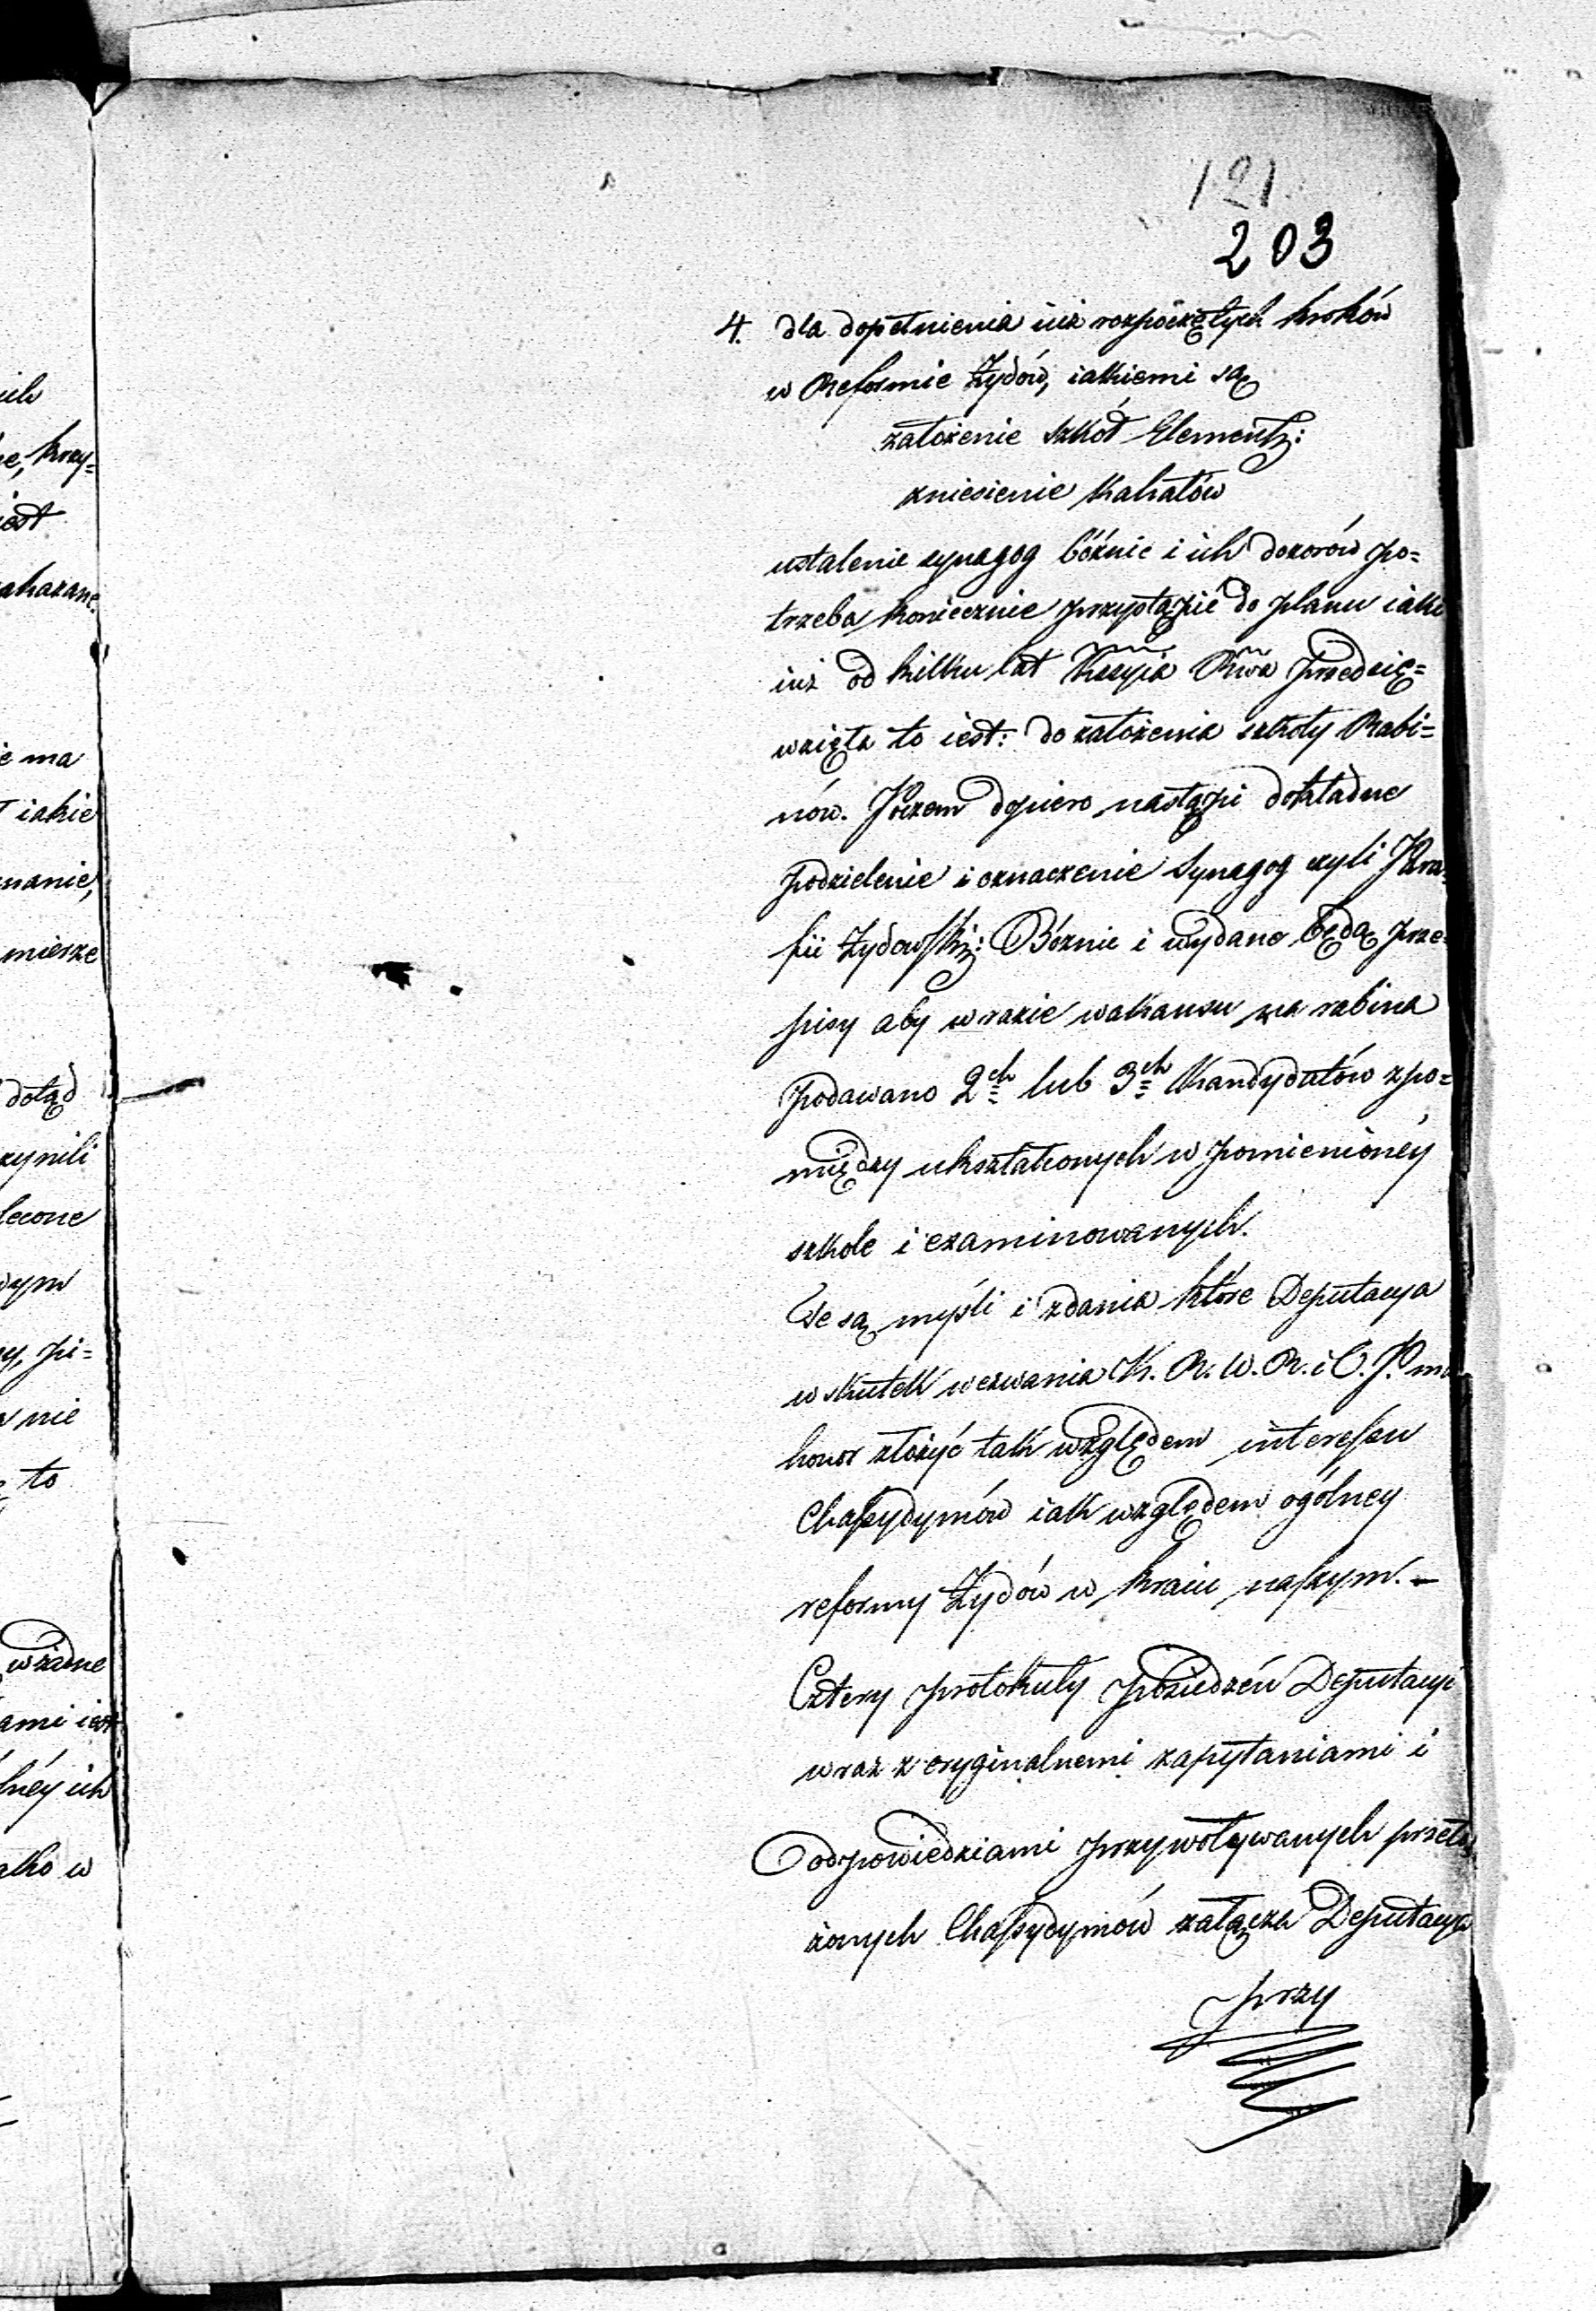 121.
203
4. dla dopełnienia iuż rozpoczętych kroków
w Reformie Żydów, iakiemi są
założenie szkół Elementz:
zniesienie Kahałów
ustalenie synagog bóżnic i ich dozorów po=
trzeba koniecznie przystąpić do planu iaki
iuż od kilku lat Kssyia Rwa przedsię=
wzięła to iest: do założenia szkoły Rabi=
nów. Poczem dopiero nastąpi dokładne
podzielenie i oznaczenie Synagog czyli Para=
fii Żydowskiz: Bóżnic i wydane będą prze=
pisy aby w razie wakansu na rabina
podawano 2ch lub 3ch Kandydatów z po=
między ukształconych w pomienionéy
szkole i examinowanych.
Te są myśli i zdania które Deputacya
w skutek wezwania K. R. W. R. i O. P. ma
honor złożyć tak względem interessu
Chassydymów iak względem ogólney
reformy Żydów w kraiu naszym. —
Cztery protokuły posiedzeń Deputacyi
wraz z oryginalnemi zapytaniami i
odpowiedziami przywoływanych przeło=
żonych Chassydymów załącza Deputacya
przy
ich
krzy=
iest
zakazane
ie ma
iakie
manie,
miesze
dotąd
czynili
lecone
dym
pi=
nie
to
w żadne
ami iest
lnéy ich
ako w